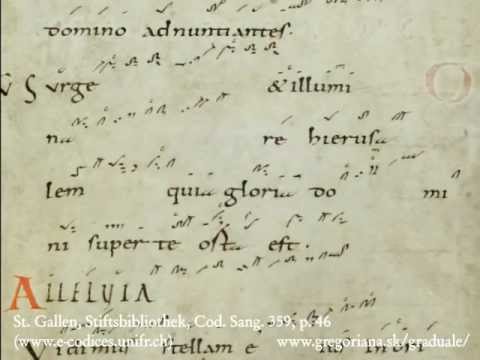 domino adnuntiantes.
V Surge & illumi
na re hierusa
lem quia gloria do mi
ni super te orta est.
ALLELUIA
St. Gallen, Stiftsbibliothek, Cod. Sang. 359, p. 46
(www.e-codices.unifr.ch) www.gregoriana.sk/graduale/
Vidimus stellam e ius